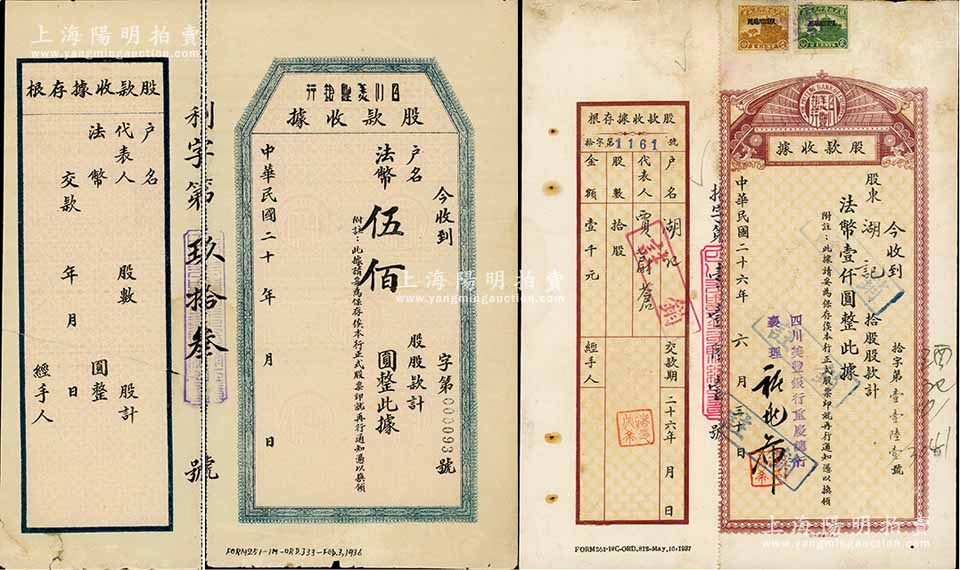 上海陽明拍賣
www.yangmingauction.com
股款收據存根
户名
代表人 股數 股計
法幣 圓整
交款 年 月 日
經手人
利字第玖拾叁號
四川美豐銀行
股款收據
字第000093號
今收到
户名 股股款計
法幣伍佰圓整此據
附註：此據請妥為保存俟本行正式股票印就再行通知憑以換領
中華民國二十 年 月 日
FORM251-1M-ORD.333-Feb.3,1936
上海陽明拍賣
www.yangmingauction.com
股款收據存根
拾字第1161號
户名 胡記
代表人 賈蔚蒼
股數 拾股
金額 壹千元
交款期 二十六年 月 日
經手人
註銷
股款收據
拾字第壹壹陸壹號
今收到
股東 湖記 拾股股款計
法幣壹仟圓整此據
附註：此據請妥為保存俟本行正式股票印就再行通知憑以換領
中華民國二十六年 六月三十日
四川美豐銀行重慶總行
襄理
FORM251-1߀C-ORD.812-May,10,1937
上海陽明拍賣
www.yangmingauction.com